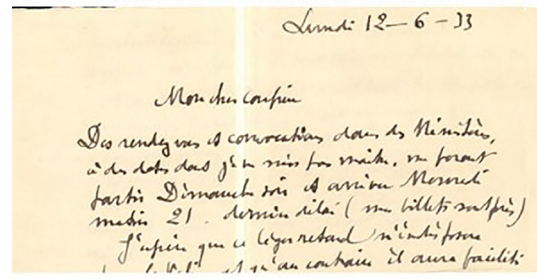 Lundi 12 - 6 - 33
Mon cher confrère
Des rendez vous et convocations dans des Ministères,
à des dates dont je ne suis pas maître, me feront
partir Dimanche soir et arriver Mercredi
matin 21. dernier délai (mes billets sont pris)
J'espère que ce léger retard n'indisposera
et qu'au contraire il aura facilité